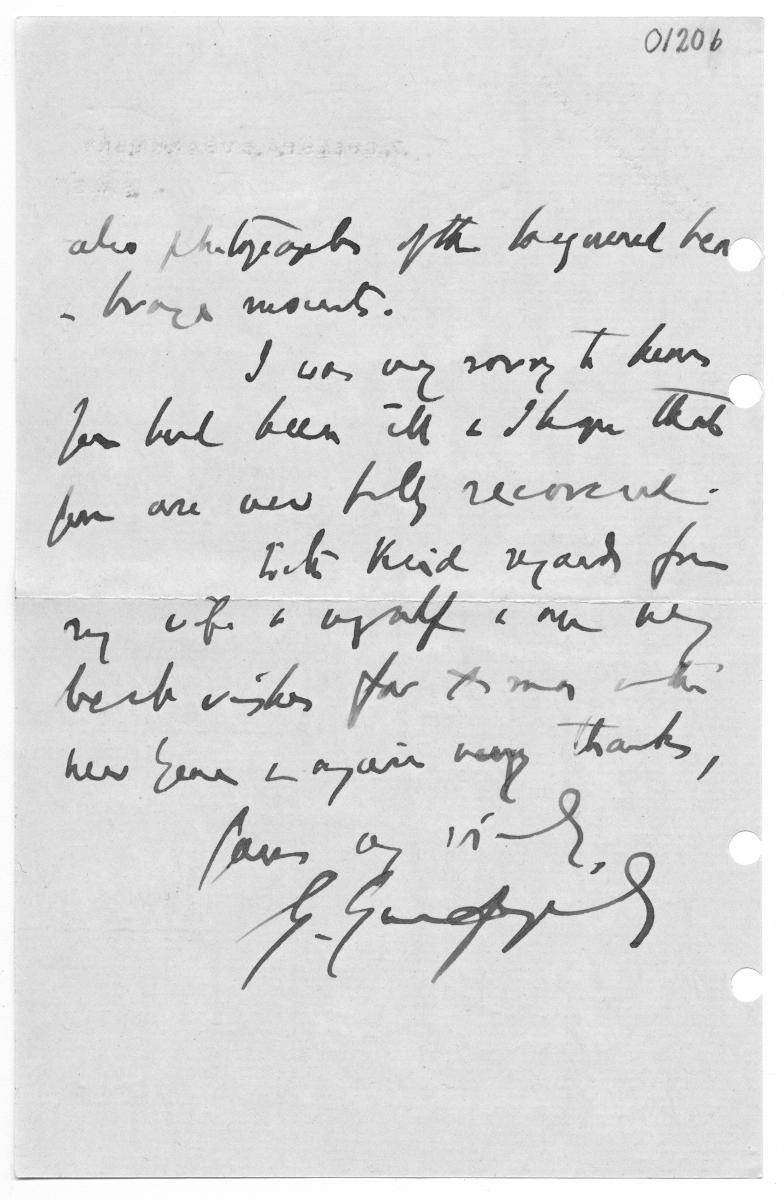 01206
also photographs of the
bronze mounts.
I was very sorry to hear
you had been ill & I hope that
you are now fully recovered.
With kind regards from
my wife & myself & our very
best wishes for Xmas & the
new year & again many thanks,
Yours very
G.